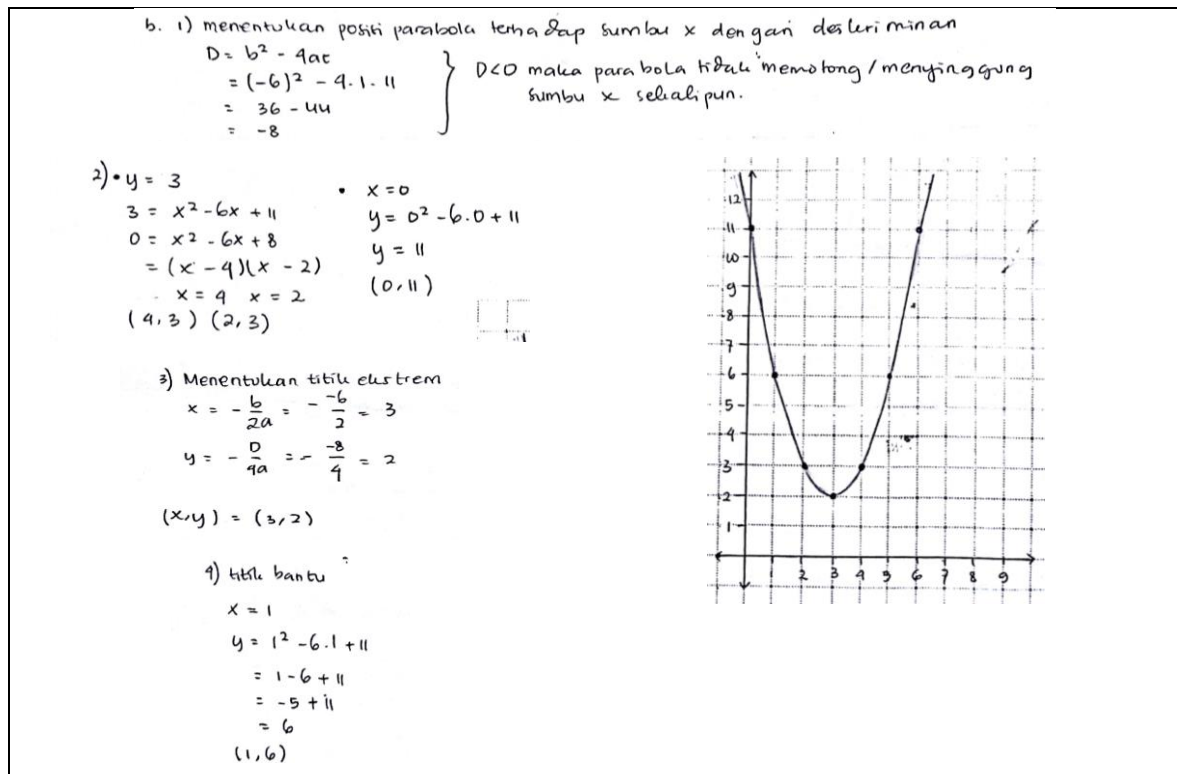 b. 1) menentukan posisi parabola terhadap sumbu x dengan deskriminan
D = b² - 4ac
= (-6)² - 4.1.11
= 36 - 44
= -8
D<0 maka parabola tidak memotong/menyinggung
sumbu x sekalipun.
2) • y = 3
3 = x² - 6x + 11
0 = x² - 6x + 8
= (x - 4)(x - 2)
x = 4 x = 2
(4,3) (2,3)
• x = 0
y = 0² - 6.0 + 11
y = 11
(0,11)
3) Menentukan titik ekstrem
x = - b/2a = - -6/2 = 3
y = - D/4a = - -8/4 = 2
(x,y) = (3,2)
4) titik bantu
x = 1
y = 1² - 6.1 + 11
= 1 - 6 + 11
= -5 + 11
= 6
(1,6)
12
11
10
9
8
7
6
5
4
3
2
1
1 2 3 4 5 6 7 8 9